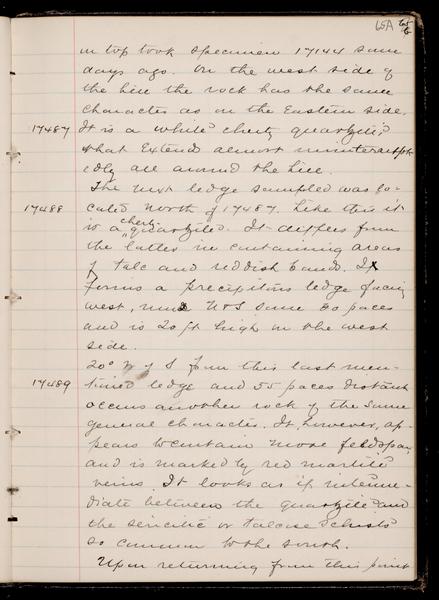 65A
on top took specimen 17144 some
days ago. On the west side of
the hill the rock has the same
character as on the Eastern side.
17487 It is a white cherty quartzite,
that Extends almost uninterrupt-
edly all around the hill.
The next ledge sampled was lo-
17488 cated North of 17487. Like this it
is a cherty quartzite. It differs from
the latter in containing areas
of talc and reddish bands. It
forms a precipitous ledge facing
west, runs N+S some 30 paces
and is 20 ft high on the west
side.
20° W of S from this last men-
17489 tioned ledge and 55 paces distant
occurs another rock of the same
general character. It, however, ap-
pears to contain more feldspar,
and is marked by red martite
veins. It looks as if interme-
diate between the quartzite and
the sericitic or talcose schists
so common to the south.
Upon returning from this point